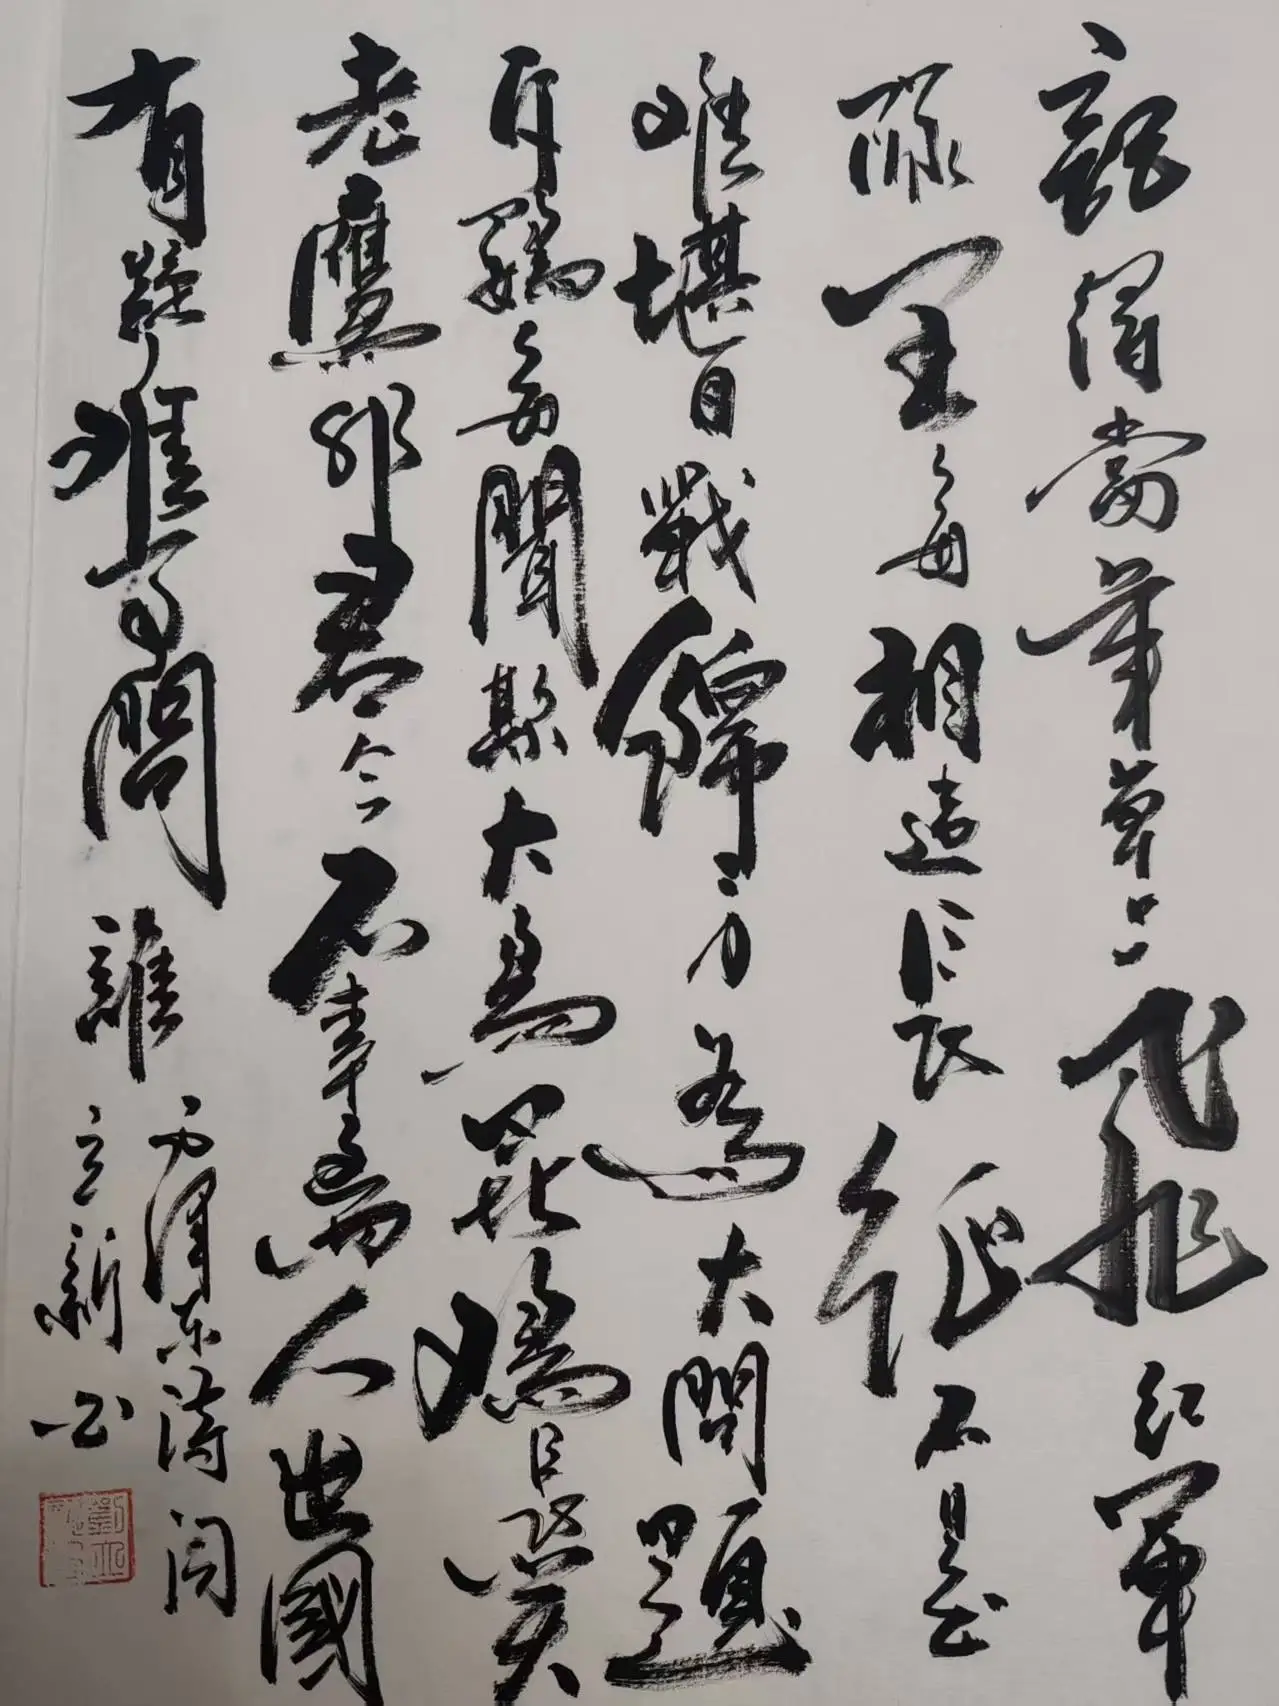 記得當年草上飛紅軍
隊里每相違長征不是
难堪日戰錦方為大問題
斥鷃每聞欺大鳥昆鷄長笑
老鷹非君今不幸離人世國
有疑难可問誰
毛澤东诗 闫
立新书